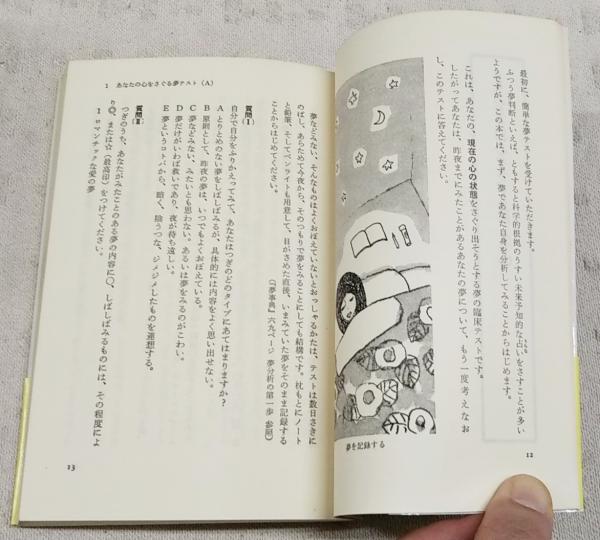 最初に、簡単な夢テストを受けていただきます。
ふつう夢判断といえば、ともすると科学的根拠のうすい未来予知的な占いをさすことが多い
ようですが、この本では、まず、夢であなた自身を分析してみることからはじめます。
これは、あなたの、現在の心の状態をさぐり出そうとする夢の臨床テストです。
したがってあなたは、昨夜までにみたことがあるあなたの夢について、もう一度考えなお
し、このテストに答えてください。
夢を記録する
12
夢などみない、そんなものはよくおぼえていないとおっしゃるかたは、テストは数日さきに
のばし、あらためて今夜から、そのつもりで夢をみることにしても結構です。枕もとにノート
と鉛筆、そしてペンライトも用意して、目がさめた直後、いまみていた夢をそのまま記録する
ことからはじめてください。
(『夢事典』六九ページ 夢分析の第一歩 参照)
質問〔Ⅰ〕
自分で自分をふりかえってみて、あなたはつぎのどのタイプにあてはまりますか?
A とりとめのない夢をしばしばみるが、具体的には内容をよく思い出せない。
B 原則として、昨夜の夢は、いつでもよくおぼえている。
C 夢などみない、みたいとも思わない。あるいは夢をみるのがこわい。
D 夢だけがいわば救いであり、夜が待ち遠しい。
E 夢というコトバから、暗く、陰うつな、ジメジメしたものを連想する。
質問〔Ⅱ〕
つぎのうち、あなたがみたことのある夢の内容に○、しばしばみるものには、その程度によ
り◎、または☆(最高印)をつけてください。
1 ロマンチックな愛の夢
1 あなたの心をさぐる夢テスト(A)
13